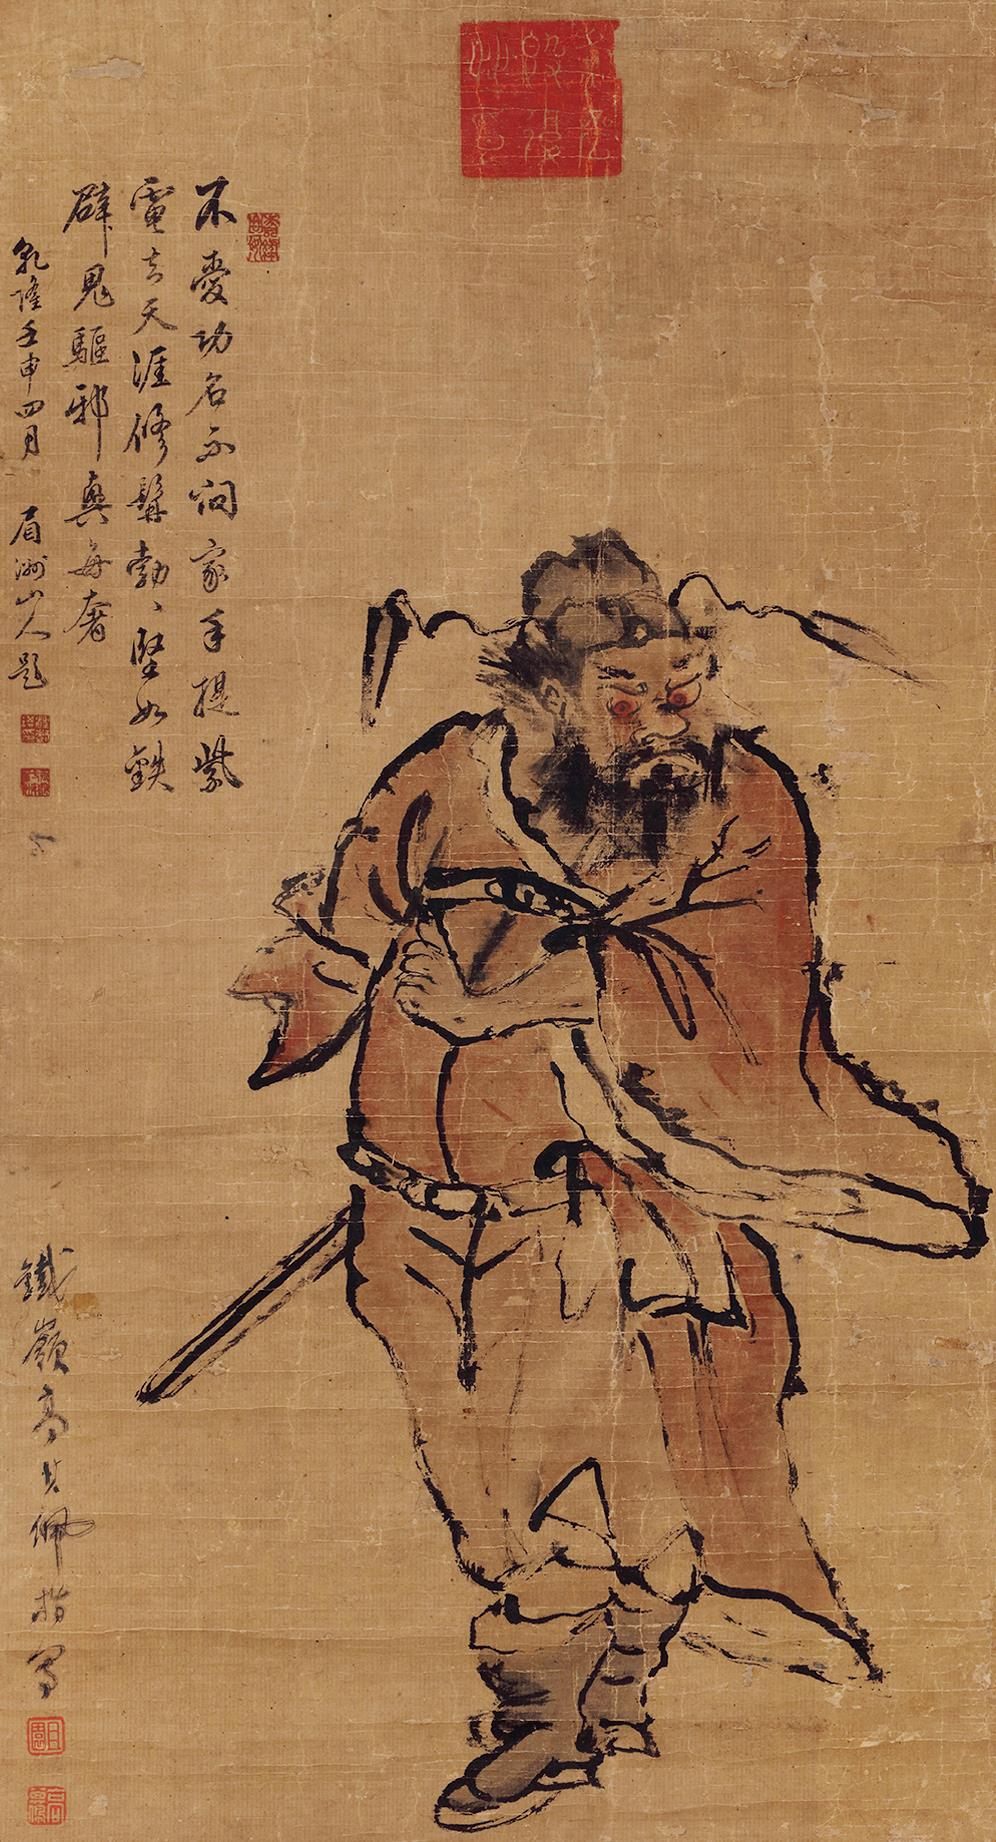 不愛功名不問家手提紫
電去天涯修髯勃〻堅如鉄
辟鬼驅邪真每奢
乹隆壬申四月 眉洲山人題
鐵嶺高其佩指寫